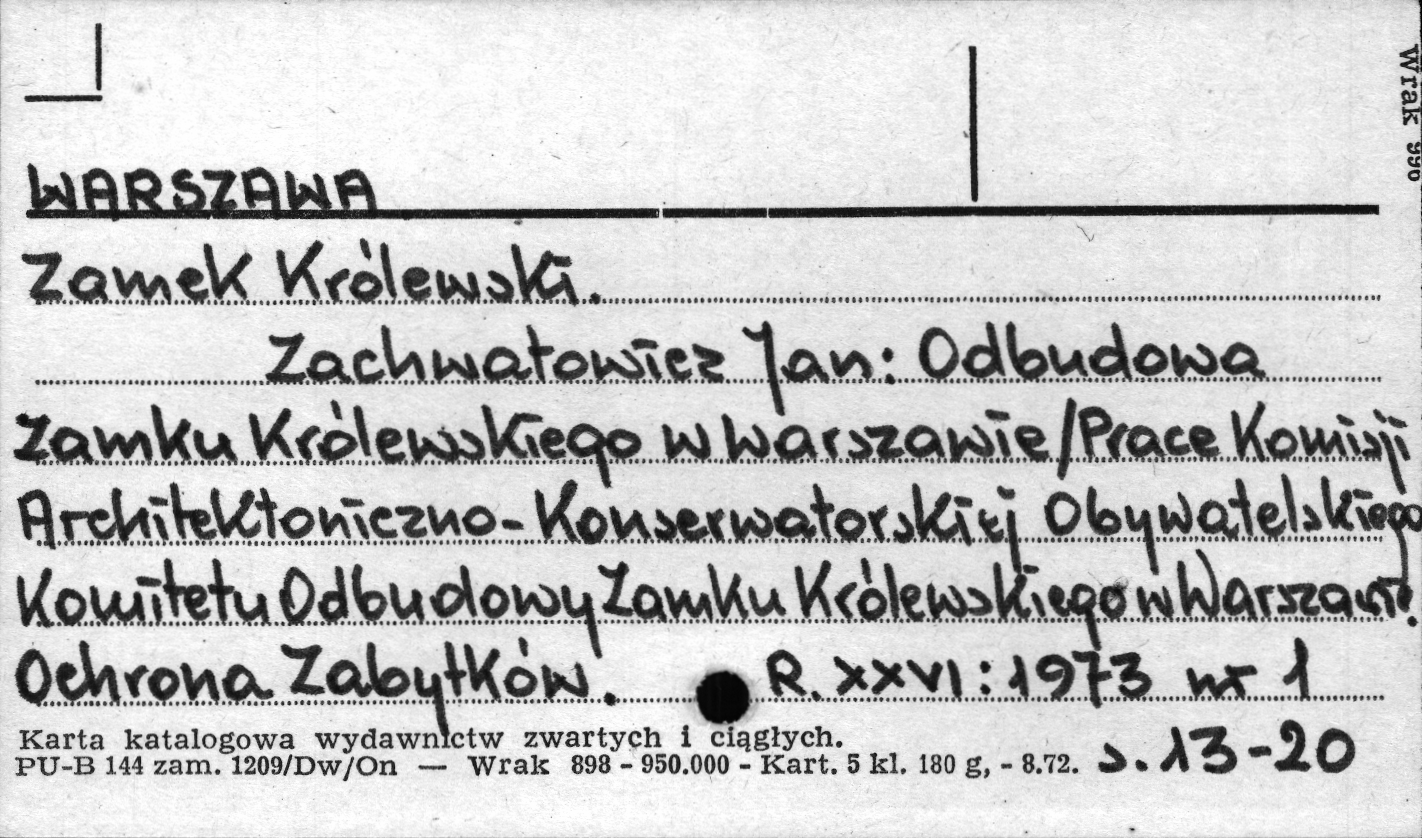 WARSZAWA
Zamek Królewski.
Zachwatowicz Jan: Odbudowa
Zamku Królewskiego w Warszawie/Prace Komisji
Architektoniczno-Konserwatorskiej Obywatelskiego
Komitetu Odbudowy Zamku Królewskiego w Warszawie.
Ochrona Zabytków. R. XXVI: 1973 nr 1
s. 13-20
Karta katalogowa wydawnictw zwartych i ciągłych.
PU-B 144 zam. 1209/Dw/On — Wrak 898 - 950.000 - Kart. 5 kl. 180 g, - 8.72.
Wrak 996